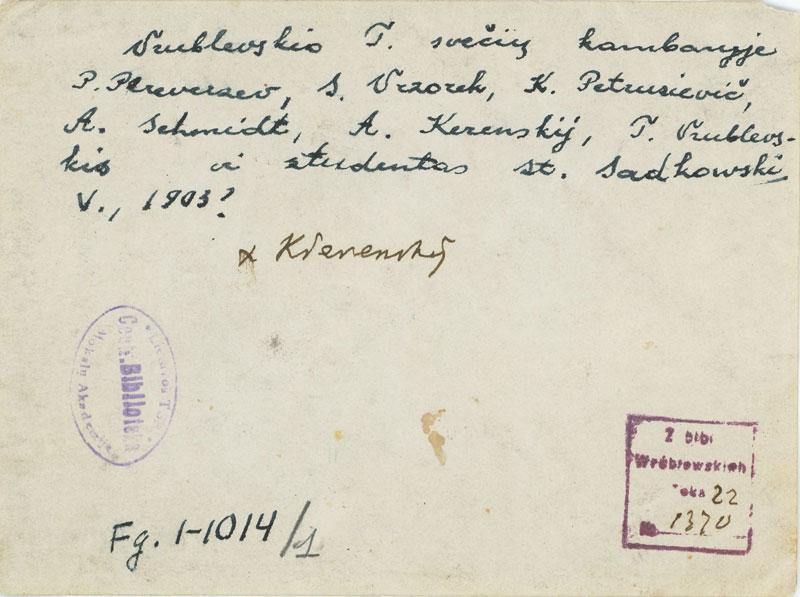 Vrublevskio T. svečių kambaryje
P. Pereverzev, S. Vrzosek, K. Petrusievič,
A. Schmidt, A. Kerenskij, T. Vrublevs-
kis ir studentas St. Sadkowski
V., 1903?
x Kierenskij
Lietuvos TSR
Centr. Biblioteka
Mokslų Akademijos
Fg. 1-1014/1
Z bibl
Wróblewskich
Teka 22
№ 1370